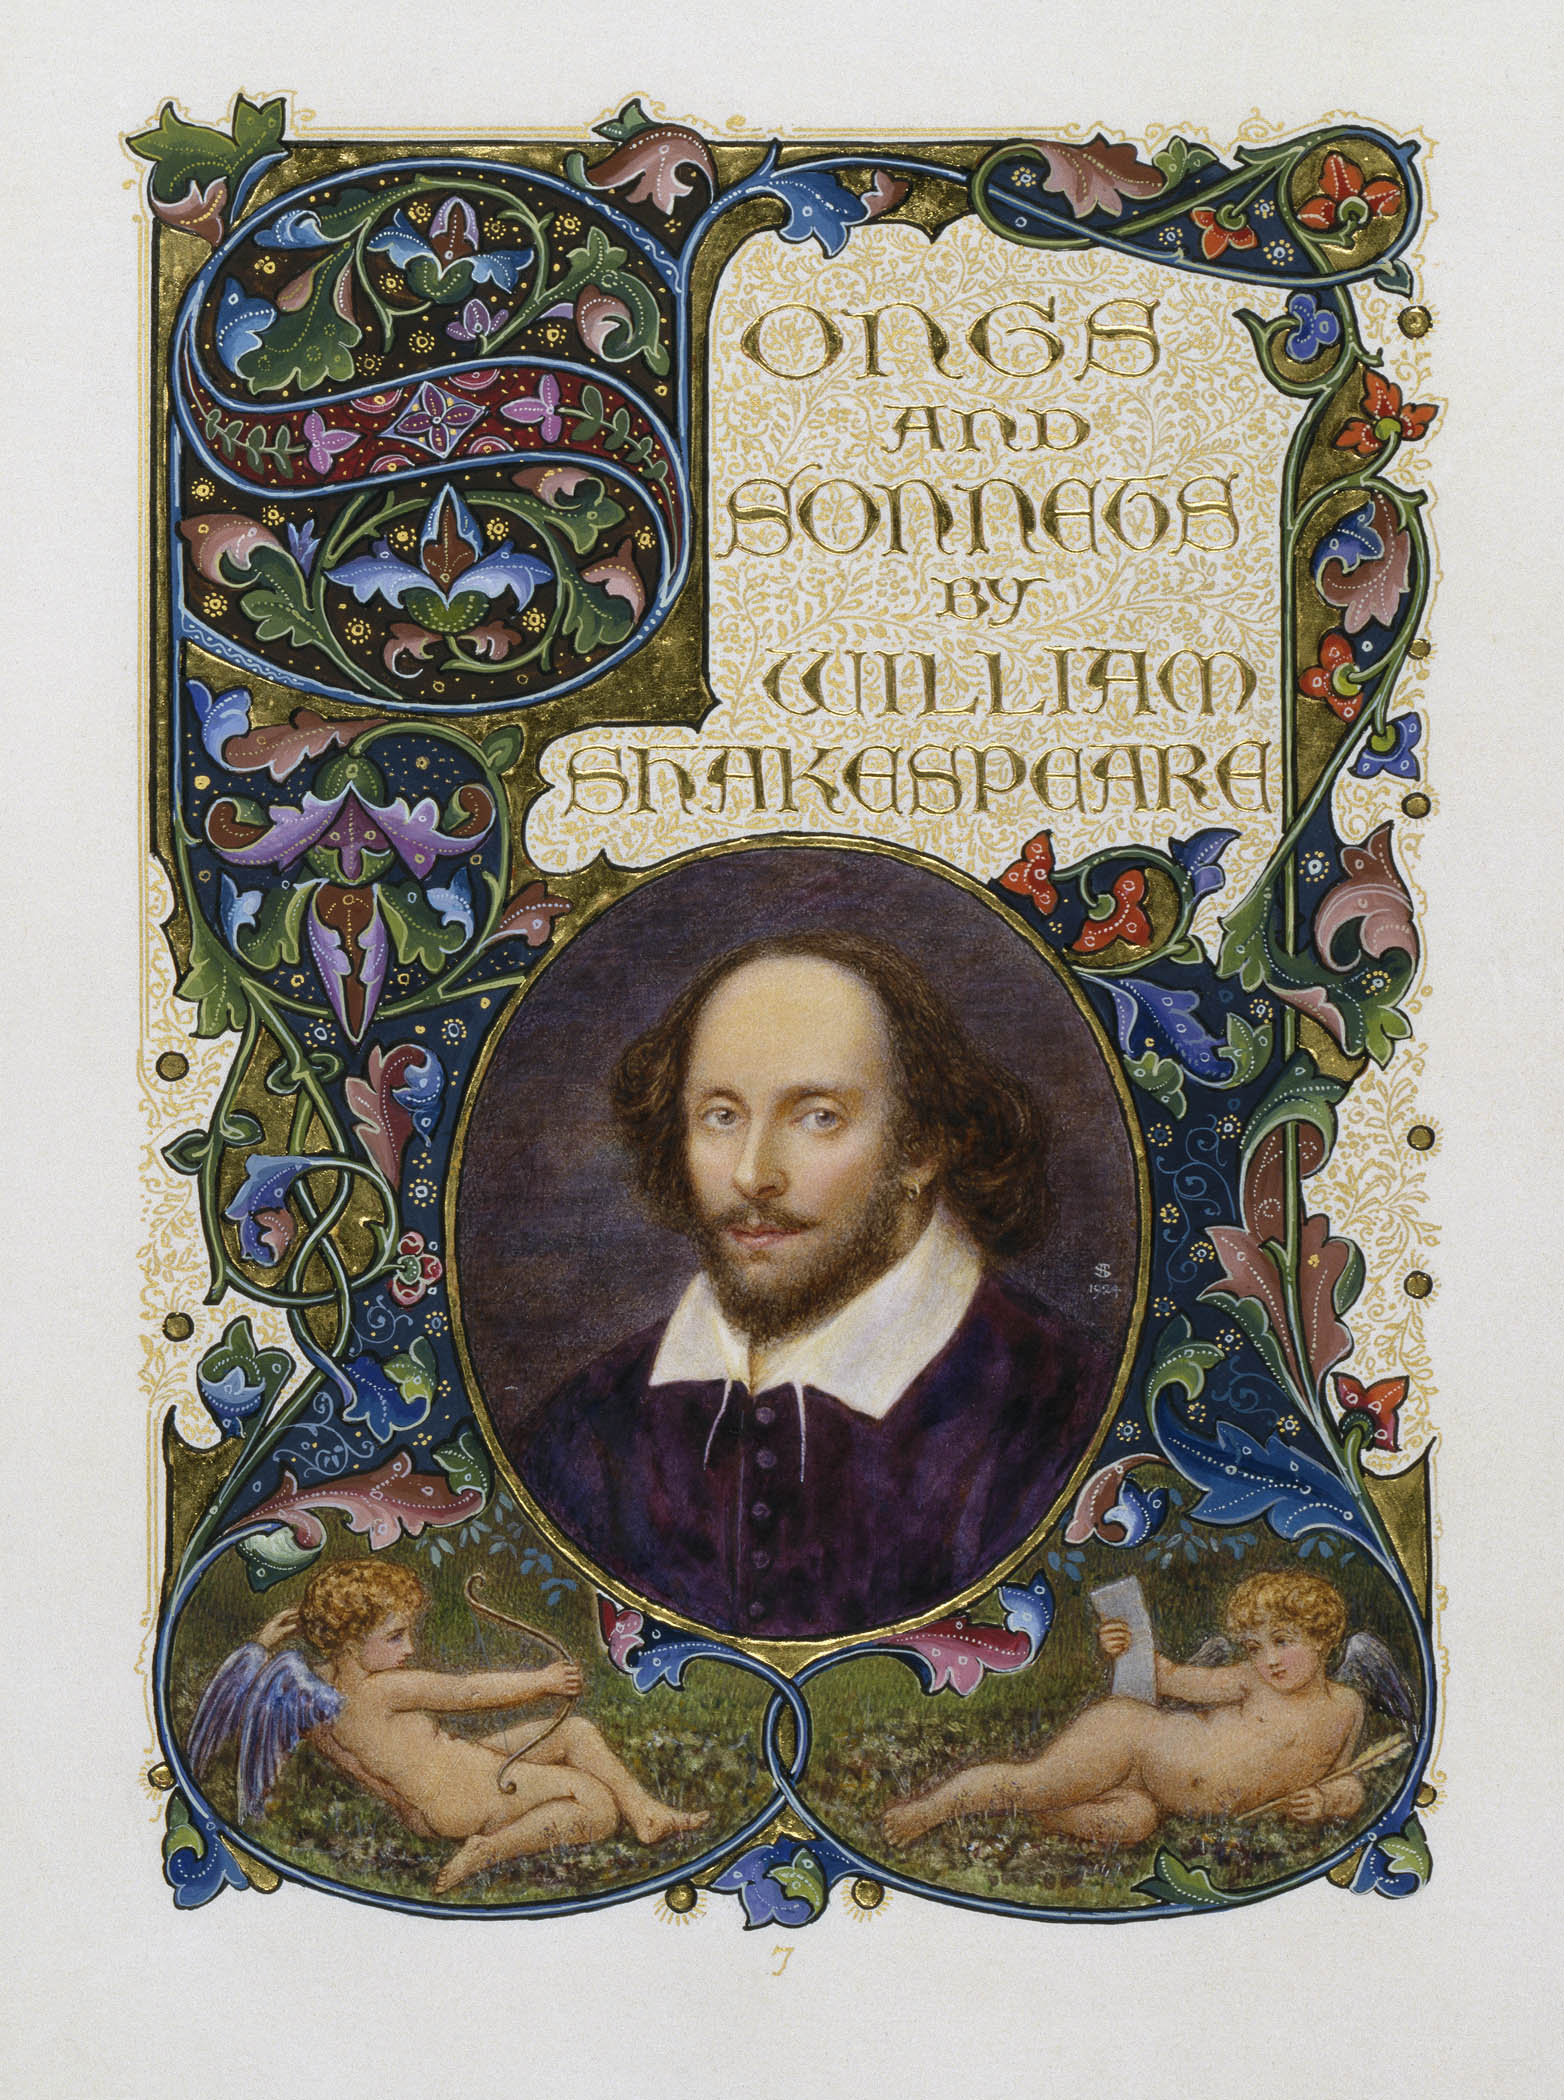 SONGS
AND
SONNETS
BY
WILLIAM
SHAKESPEARE
AS
1924
7